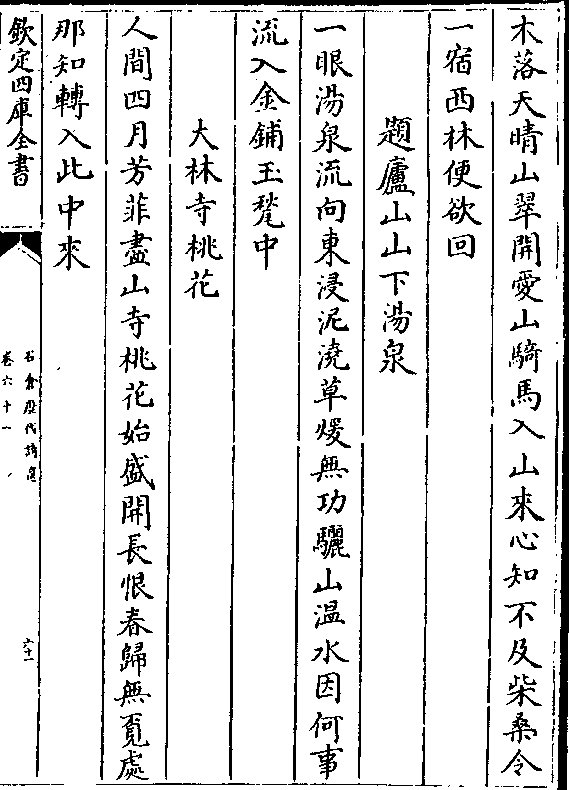 木落天晴山翠開愛山騎馬入山來心知不及柴桑令
一宿西林便欲回
題廬山山下湯泉
一眼湯泉流向東浸泥澆草煖無功驪山温水因何事
流入金鋪玉甃中
大林寺桃花
人間四月芳菲盡山寺桃花始盛開長恨春歸無覓處
那知轉入此中來
欽定四庫全書
石倉歷代詩選
卷六十一